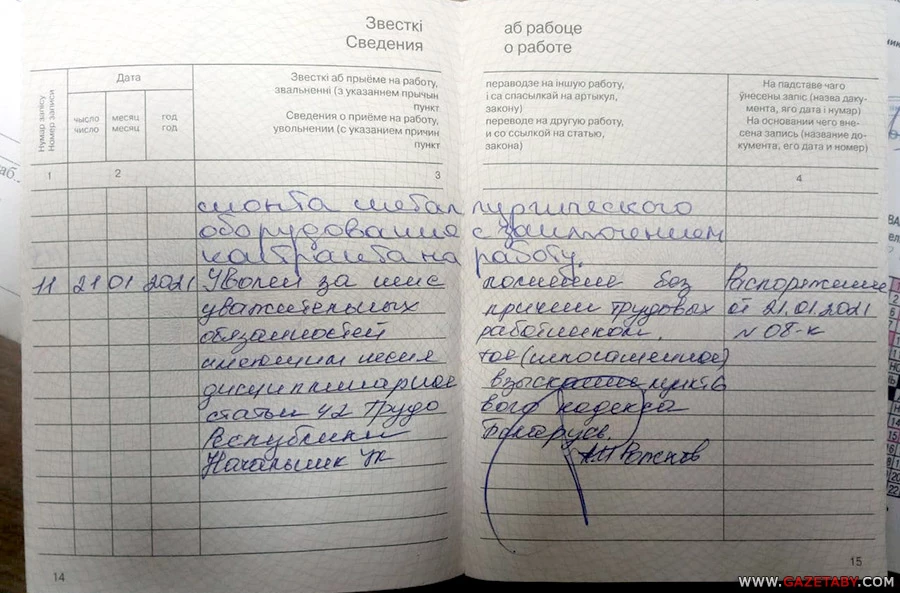 Звесткі аб рабоце
Сведения о работе
Нумар запісу
Номер записи
Дата
число
число
месяц
месяц
год
год
Звесткі аб прыёме на работу, пераводзе на іншую работу,
звальненні (з указаннем прычын і са спасылкай на артыкул,
пункт закону)
Сведения о приёме на работу, переводе на другую работу,
увольнении (с указанием причин и со ссылкой на статью,
пункт закона)
На падставе чаго
ўнесены запіс (назва даку-
мента, яго дата і нумар)
На основании чего вне-
сена запись (название до-
кумента, его дата и номер)
1 2 3 4
монта металлургического
оборудование с заключением
контракта на работу.
11 21 01 2021 Уволен за неисполнение без Распоряжение
уважительных причин трудовых от 21.01.2021
обязанностей работником, N 08-к
имеющим неснятое (непогашенное)
дисциплинарное взыскание пункт 6
статьи 42 Трудового кодекса
Республики Беларусь.
Начальник УК
14 15
WWW.GAZETABY.COM